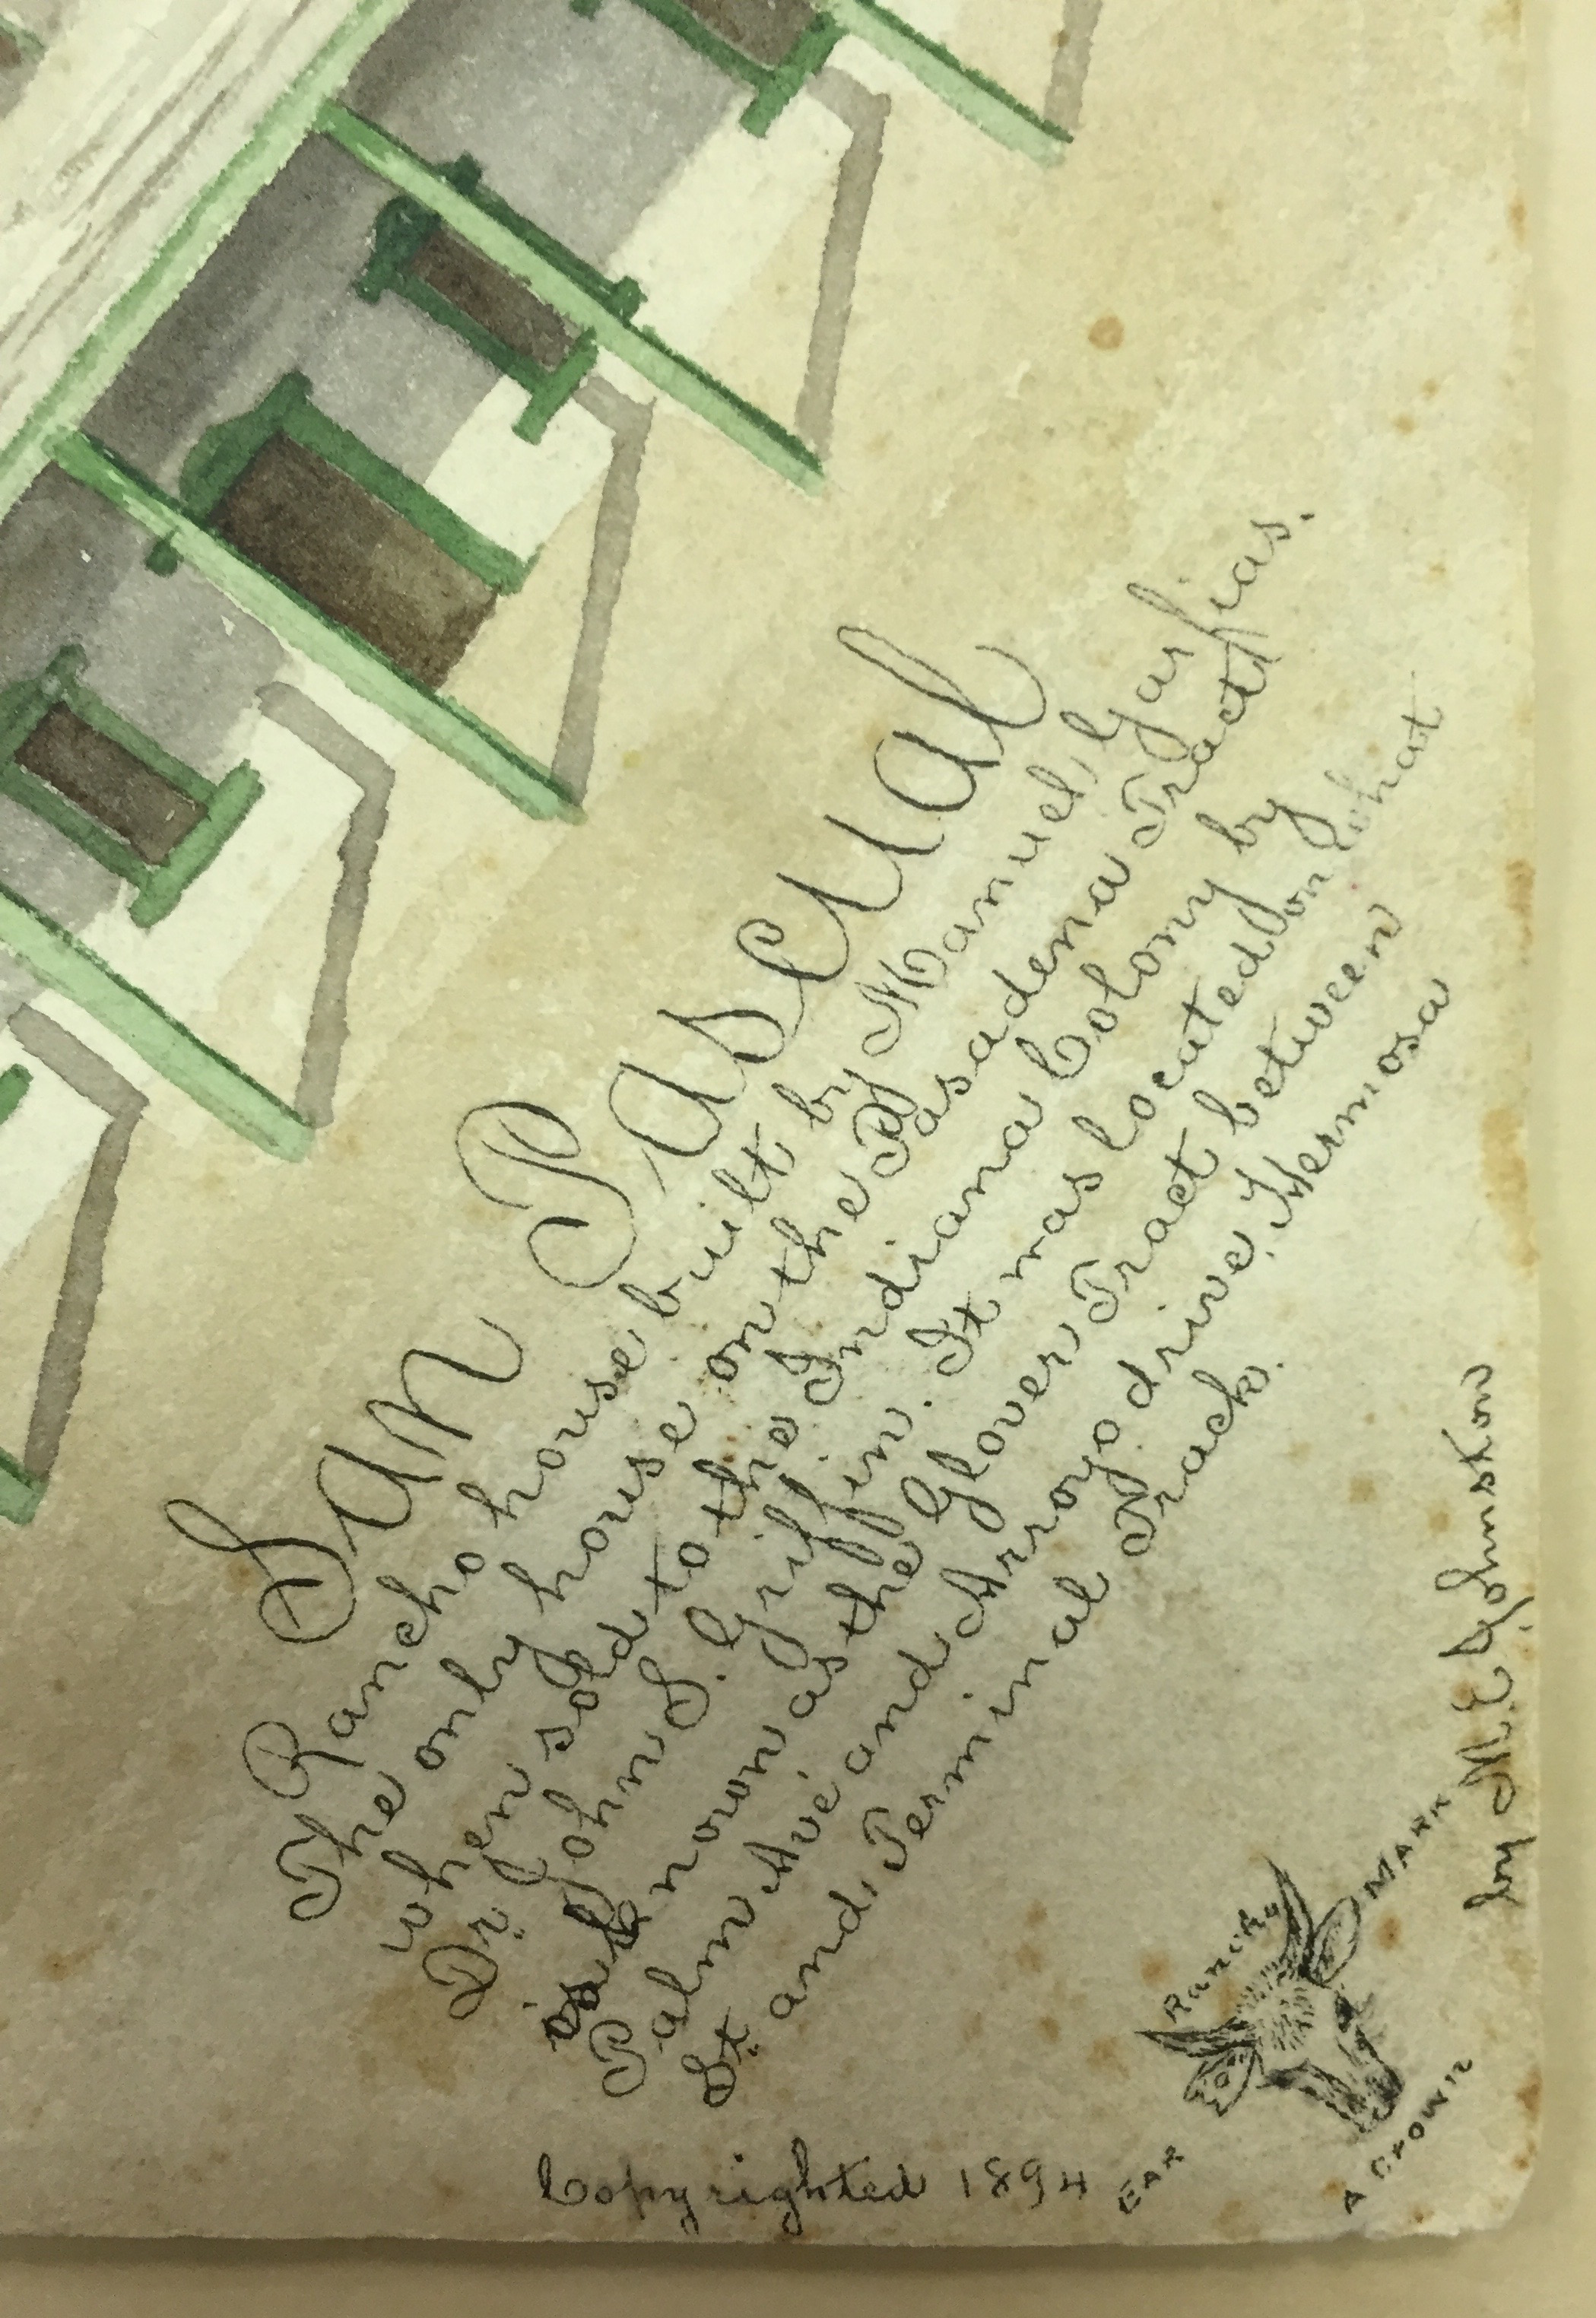 SAN PASCUAL
Rancho house built by Manuel Garfias.
The only house on the Pasadena Tract
when sold to the Indiana Colony by
Dr. John S. Griffin. It was located on what
is now as the Glover Tract between
Palm Ave and Arroyo drive, Hermosa
St. and Terminal Track.
Copyrighted 1894
Rancho
EAR MARK
A CROWN
by M. E. Johnston